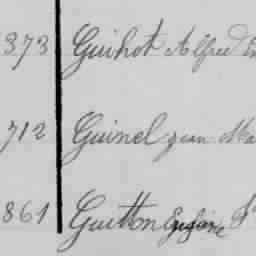 373 Guihot Alfred
712 Guinel Jean Ma
861 Guitton Eugène F